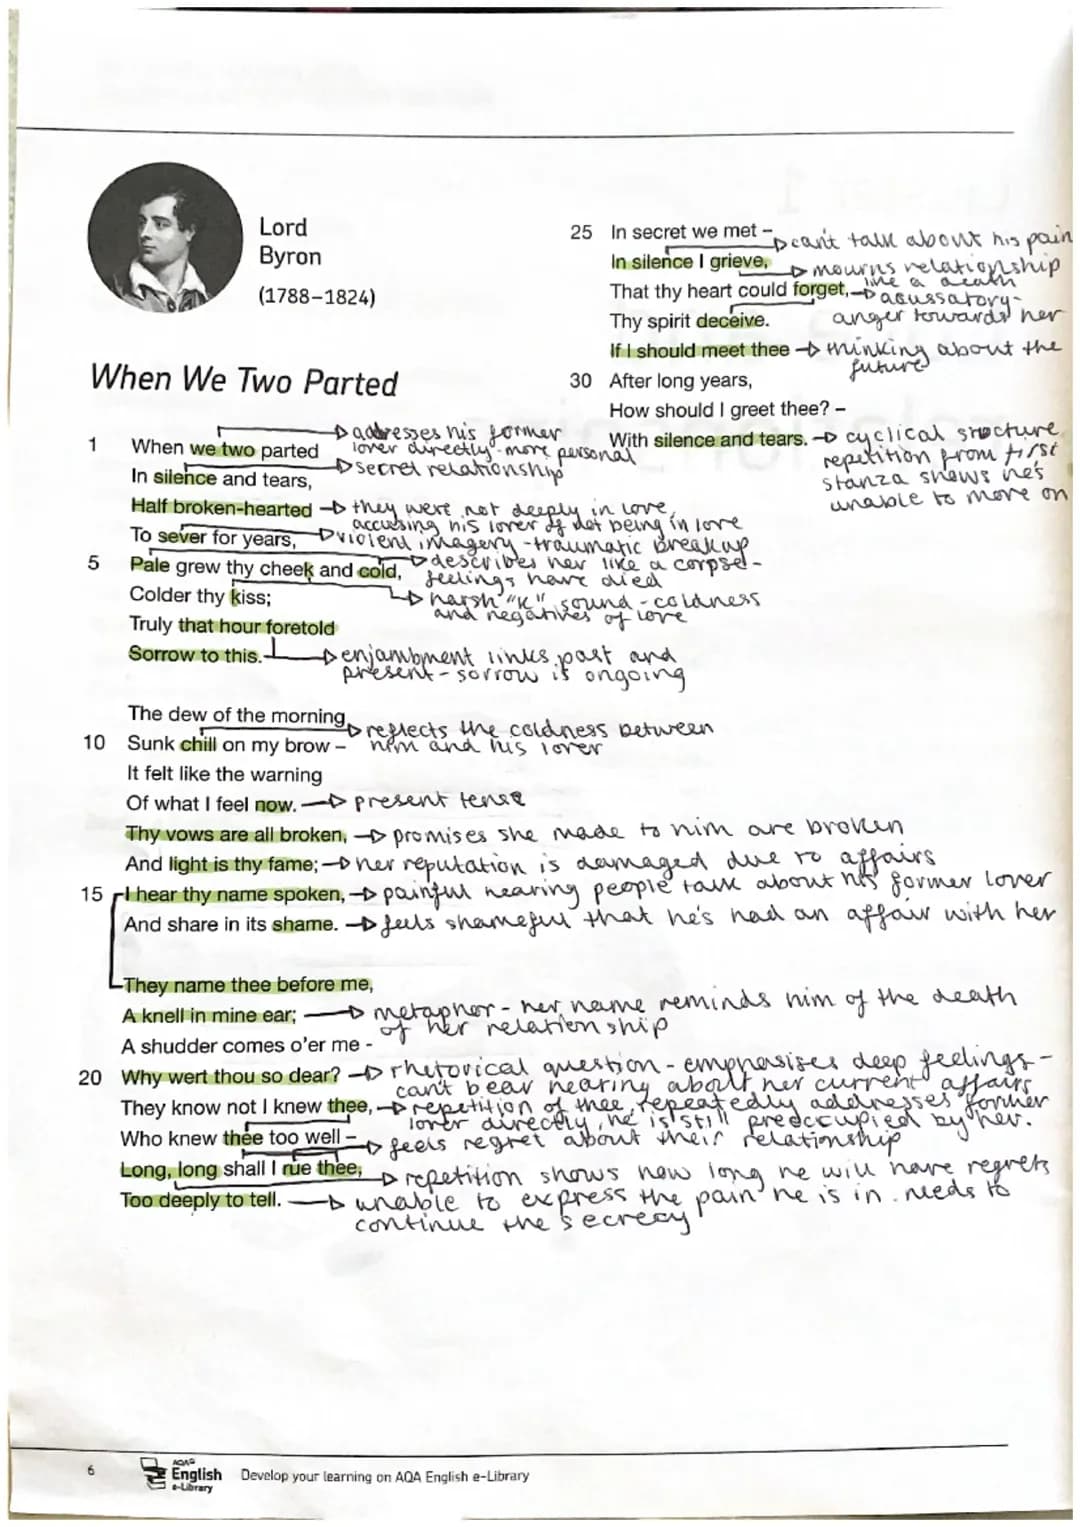 Lord
Byron
(1788–1824)
When We Two Parted
1 When we two parted
→ addresses his former
lover directly - more personal
In silence and tears,
→ secret relationship
Half broken-hearted → they were not deeply in love,
accusing his lover of not being in love
To sever for years, → violent imagery - traumatic breakup
5 Pale grew thy cheek and cold,
→ describes her like a corpse -
feelings have died
Colder thy kiss;
→ harsh "K" sound - coldness
and negatives of love
Truly that hour foretold
Sorrow to this. → enjambment links past and
present - sorrow is ongoing
The dew of the morning
→ reflects the coldness between
10 Sunk chill on my brow – him and his lover
It felt like the warning
Of what I feel now. → present tense
Thy vows are all broken, → promises she made to him are broken
And light is thy fame; → her reputation is damaged due to affairs
15 I hear thy name spoken, → painful hearing people talk about his former lover
And share in its shame. → feels shameful that he's had an affair with her
They name thee before me,
A knell in mine ear; → metaphor - her name reminds him of the death
of her relationship
A shudder comes o'er me -
20 Why wert thou so dear? → rhetorical question - emphasises deep feelings -
can't bear hearing about her current affairs
They know not I knew thee, → repetition of thee, repeatedly addresses former
lover directly, he is still preoccupied by her.
Who knew thee too well –
→ feels regret about their relationship
Long, long shall I rue thee,
→ repetition shows how long he will have regrets
Too deeply to tell. → unable to express the pain he is in. needs to
continue the secrecy
25 In secret we met –
→ can't talk about his pain
In silence I grieve,
→ mourns relationship
like a death
That thy heart could forget, → acussatory -
anger towards her
Thy spirit deceive.
If I should meet thee → thinking about the
future
30 After long years,
How should I greet thee? –
With silence and tears. → cyclical structure
repetition from first
stanza shows he's
unable to move on
6
AQA
English
e-Library
Develop your learning on AQA English e-Library